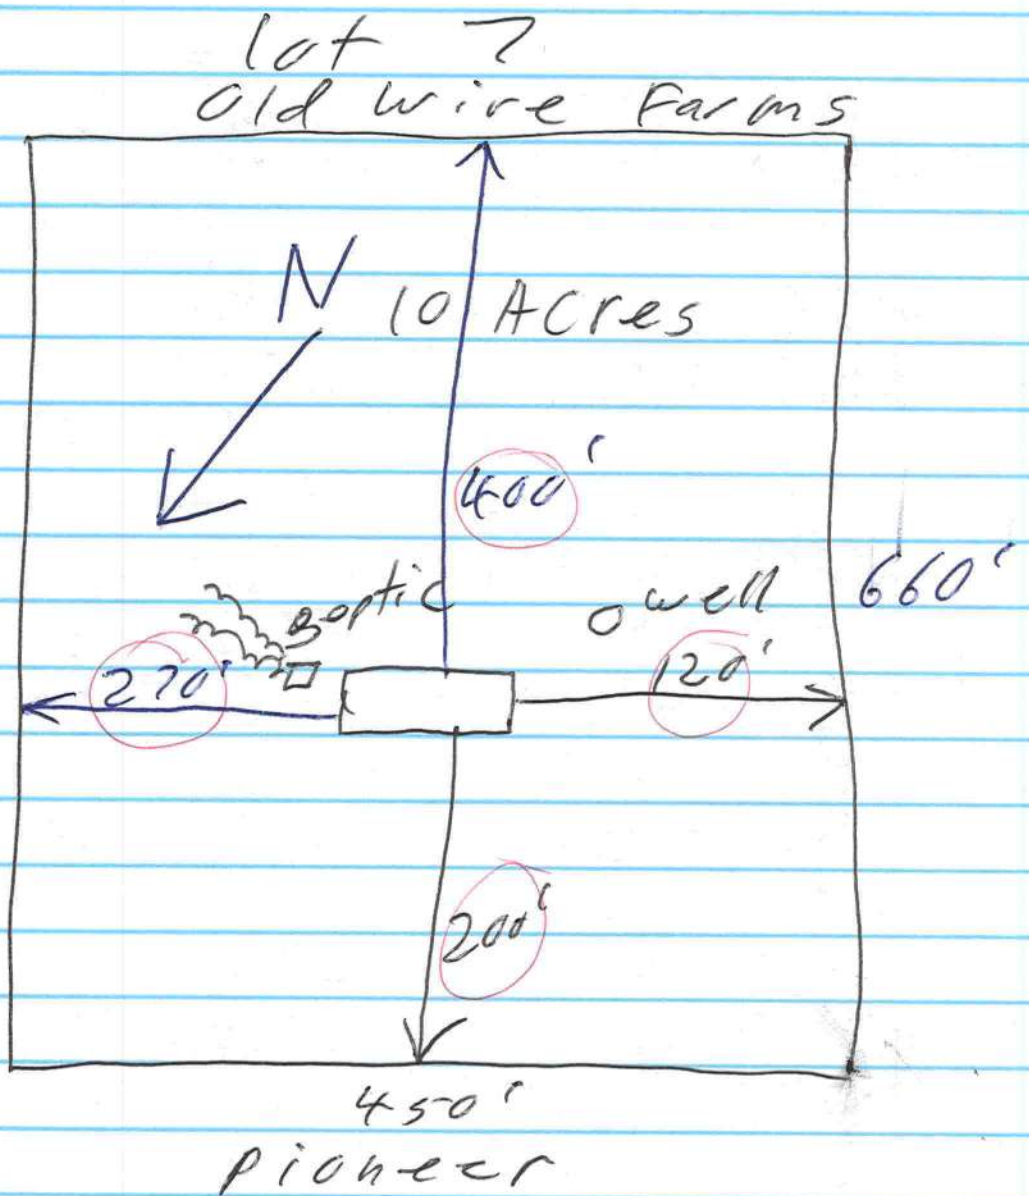 lot 7
Old Wire Farms
N
10 Acres
400'
septic
well
660'
270'
120'
200'
450'
pioneer